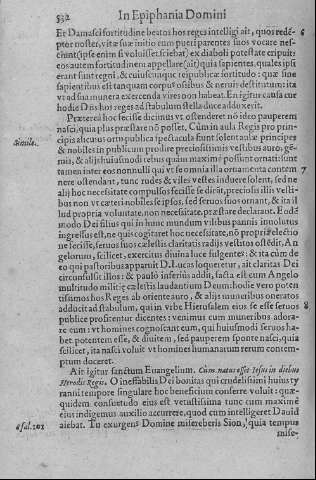 532 In Epiphania Domini
Et Damasci fortitudine beatos hos reges intelligi ait, quos redẽp
tor noster, vitæ suæ initio cum pueri parentes suos vocare nes-
chint (ipse enim si voluisset sciebat) ex diaboli potestate eripuit:
eos autem fortitudinem appellare (ait) quia sapientes, quales ipsi
erant sunt regni, & cuiuscunque reipublicæ fortitudo: quæ sine
sapientibus est tanquam corpus ossibus & neruis destitutum: ita
vt ad sua munera exercenda vires non habeat. En igitur causa cur
hodie Dñs hos reges ad stabulum stella duce adduxerit.
Præterea hoc fecisse dicimus vt ostenderet nõ ideo pauperem
nasci, quia plus præstare nõ posset. Cũ in aula Regis pro prin-
cipis alicuius ortu publica spectacula sunt solent aulæ principes
& nobiles in publicum prodire preciosissimis vestibus auro, gẽ-
mis, & alijs huiusmodi rebus quàm maximè possunt ornati: sunt
tamen inter eos nonnulli qui vt se omnia illa ornamenta contem
nere ostendant, tunc rudes & viles vestes induere solent, sed ne
alij hoc necessitate compulsos fecisse se dicãt, preciosis illis vesti-
bus non vt cæteri nobiles se ipsos, sed seruos suos ornant, & ita il
lud propria voluntate, non necessitate, præstare declarant. Eodẽ
modo Dei filius qui in hunc mundum vilibus pannis inuolutus
ingressus est, ne quis cogitaret hoc necessitate, nõ propria electio
ne fecisse, seruos suos cælestis claritatis radijs vestitos ostẽdit, An
gelorum, scilicet, exercitus diuina luce fulgentes: & ita cùm de
eo qui pastoribus apparuit D. Lucas loqueretur, ait claritas Dei
circunfulsit illos: & paulò inferiùs addit, facta est cum Angelo
multitudo militiæ cælestis laudantium Deum: hodie vero poten
tissimos hos Reges ab oriente auro, & alijs muneribus oneratos
adducit ad stabulum, qui in vrbe Hierusalem eius se esse seruos
publicè profitentur dicentes: venimus cum muneribus adora-
re eum: vt homines cognoscant eum, qui huiusmodi seruos ha-
bet potentem esse, & diuitem, sed pauperem sponte nasci, quia
scilicet, ita nasci voluit vt homines humanarum rerum contem-
ptum doceret.
Ait igitur sanctum Euangelium. Cum natus esset Iesus in diebus
Herodis Regis. O ineffabilis Dei bonitas qui crudelissimi huius ty
ranni tempore singulare hoc beneficium conferre voluit: quæ-
quidem consuetudo eius est vetustissima tunc cum maximè
eius indigemus auxilio accurrere, quod cum intelligeret Dauid
aiebat. Tu exurgens Domine misereberis Sion, quia tempus
mise-
6
Simile.
7
8
Psal. 101